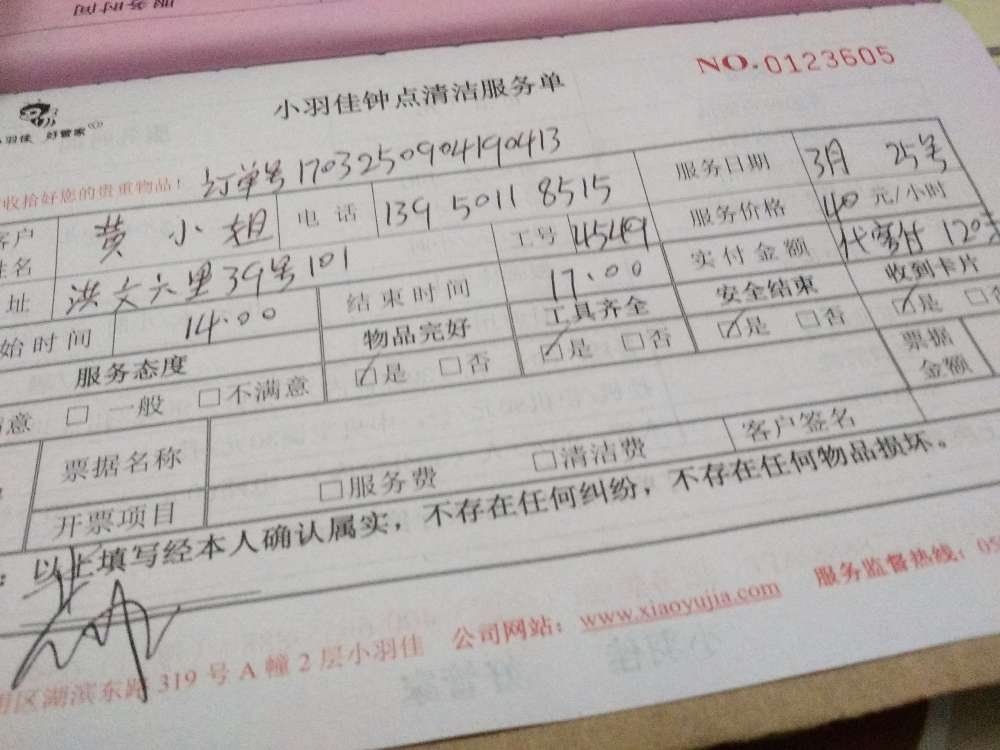 NO.0123605
小羽佳钟点清洁服务单
小羽佳 好管家
收拾好您的贵重物品! 订单号 1703250904190413
客户姓名 黄小姐 电话 139 5011 8515 服务日期 3月 25号
址 洪文六里39号101 工号 4549 服务价格 40 元/小时
始时间 14.00 结束时间 17.00 实付金额 120
服务态度 物品完好 工具齐全 安全结束 收到卡片
意 □ 一般 □不满意 ☑是 □否 ☑是 □否 ☑是 □否 ☑是 □ 票据金额
票据名称
开票项目 □服务费 □清洁费 客户签名
: 以上填写经本人确认属实，不存在任何纠纷，不存在任何物品损坏。
区湖滨东路 319 号 A 幢 2 层小羽佳 公司网站: www.xiaoyujia.com 服务监督热线: 05